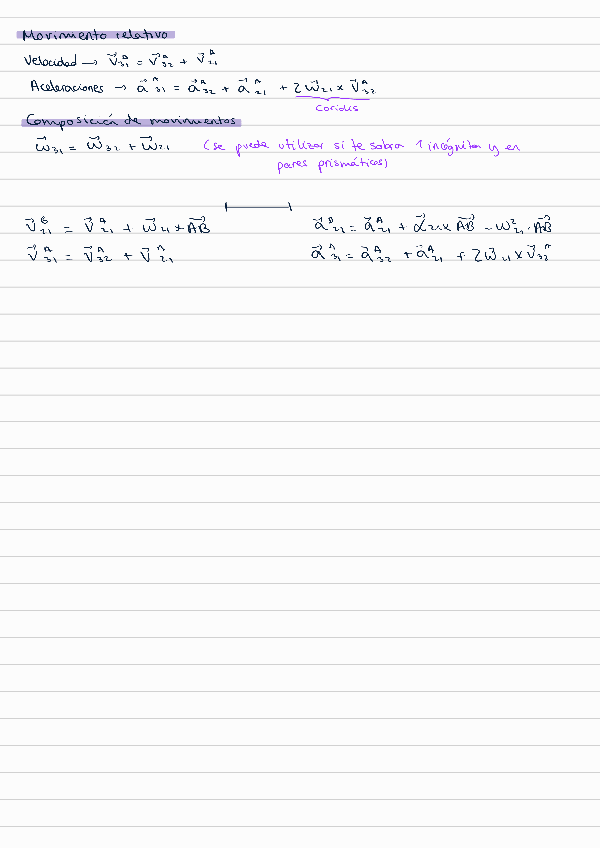 Movimiento relativo
Velocidad → v⃗₃₁ᴬ = v⃗₃₂ᴬ + v⃗₂₁ᴬ
Aceleraciones → a⃗₃₁ᴬ = a⃗₃₂ᴬ + a⃗₂₁ᴬ + 2ω⃗₂₁ × v⃗₃₂ᴬ
Coriolis
Composición de movimientos
ω⃗₃₁ = ω⃗₃₂ + ω⃗₂₁ (se puede utilizar si te sobra 1 incógnita y en
pares prismáticos)
v⃗₂₁ᴮ = v⃗₂₁ᴬ + ω⃗₂₁ × AB⃗ a⃗₂₁ᴮ = a⃗₂₁ᴬ + α⃗₂₁ × AB⃗ - ω²₂₁ · AB⃗
v⃗₃₁ᴬ = v⃗₃₂ᴬ + v⃗₂₁ᴬ a⃗₃₁ᴬ = a⃗₃₂ᴬ + a⃗₂₁ᴬ + 2ω⃗₂₁ × v⃗₃₂ᴬ